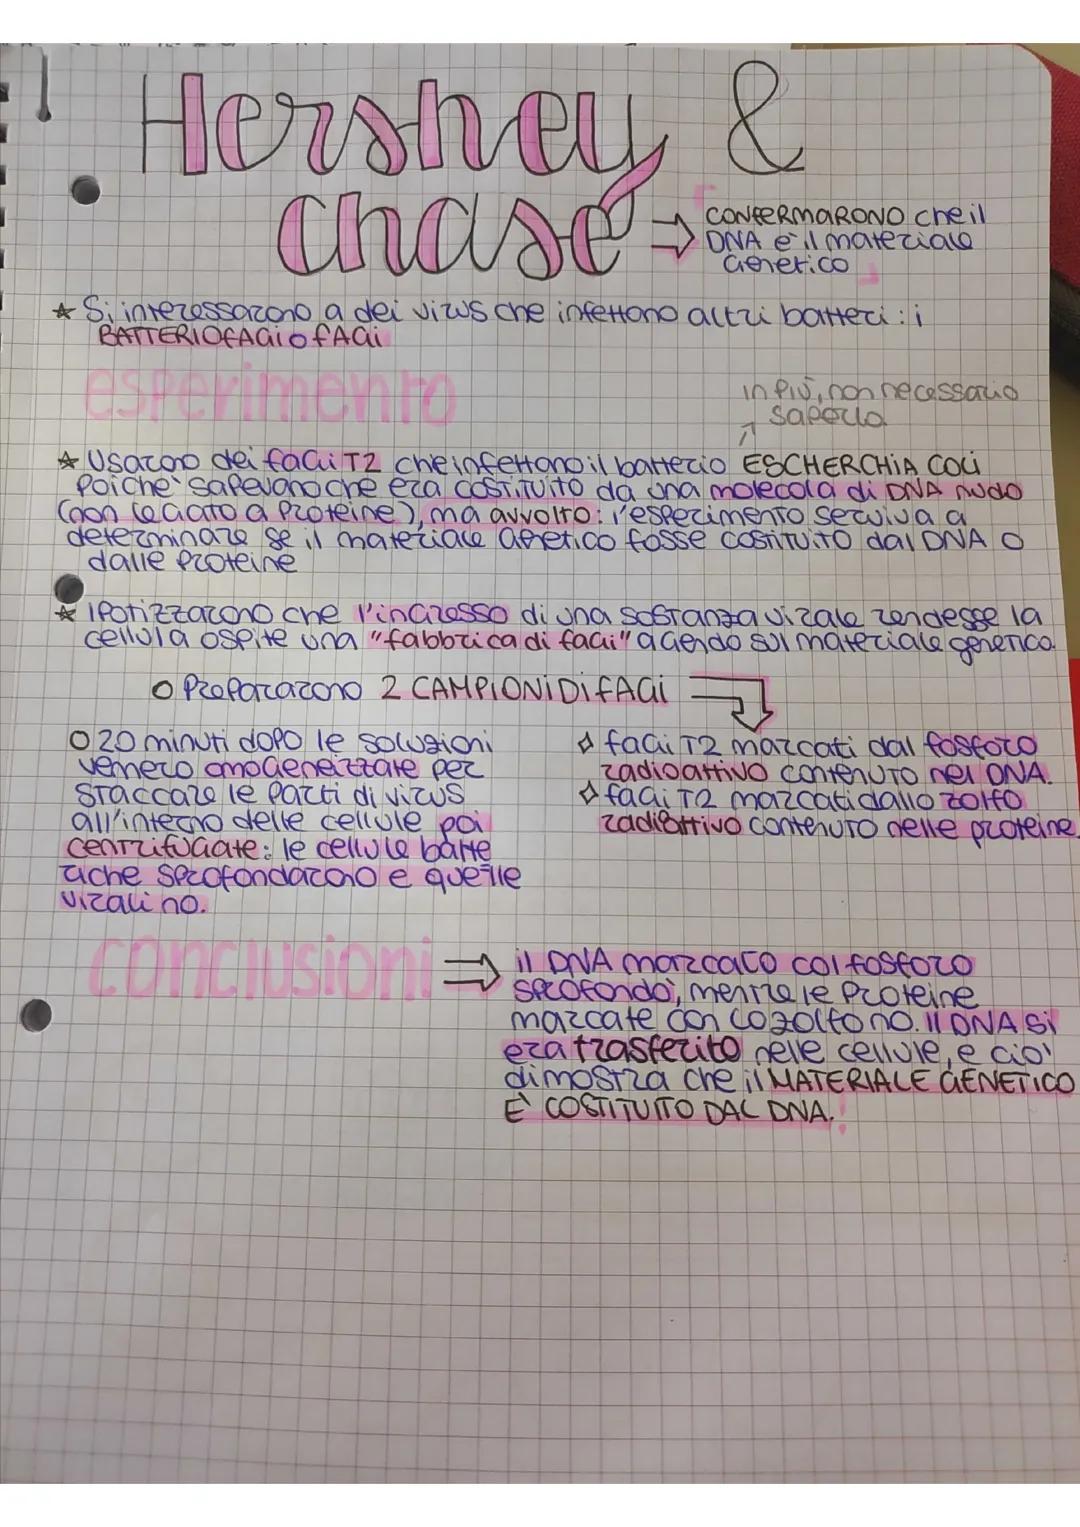 Hershey &
chase
→ CONFERMARONO che il
DNA è il materiale
Genetico
★ Si interessarono a dei virus che infettano altri batteri: i
BATTERIOFAGI O FAGI
esperimento
in più, non necessario
saperlo
★ Usarono dei fagi T2 che infettano il batterio ESCHERCHIA COLI
poiche' sapevano che era costituito da una molecola di DNA nudo
(non legato a proteine), ma avvolto: l'esperimento serviva a
determinare se il materiale genetico fosse costituito dal DNA o
dalle proteine
★ Ipotizzarono che l'ingresso di una sostanza virale rendesse la
cellula ospite una "fabbrica di fagi" agendo sul materiale genetico.
o Prepararono 2 CAMPIONI Di FAGi
o 20 minuti dopo le soluzioni
vennero omogeneizzate per
staccare le parti di virus
all'interno delle cellule poi
centrifugate: le cellule batte
riche sprofondarono e quelle
virali no.
◇ fagi T2 marcati dal fosforo
radioattivo contenuto nel DNA.
◇ fagi T2 marcati dallo zolfo
radiottivo contenuto nelle proteine.
conclusioni ⇒
il DNA marcato col fosforo
sprofondò, mentre le proteine
marcate con lo zolfo no. Il DNA si
era trasferito nelle cellule, e cio'
dimostra che il MATERIALE GENETICO
E' COSTITUITO DAL DNA.!